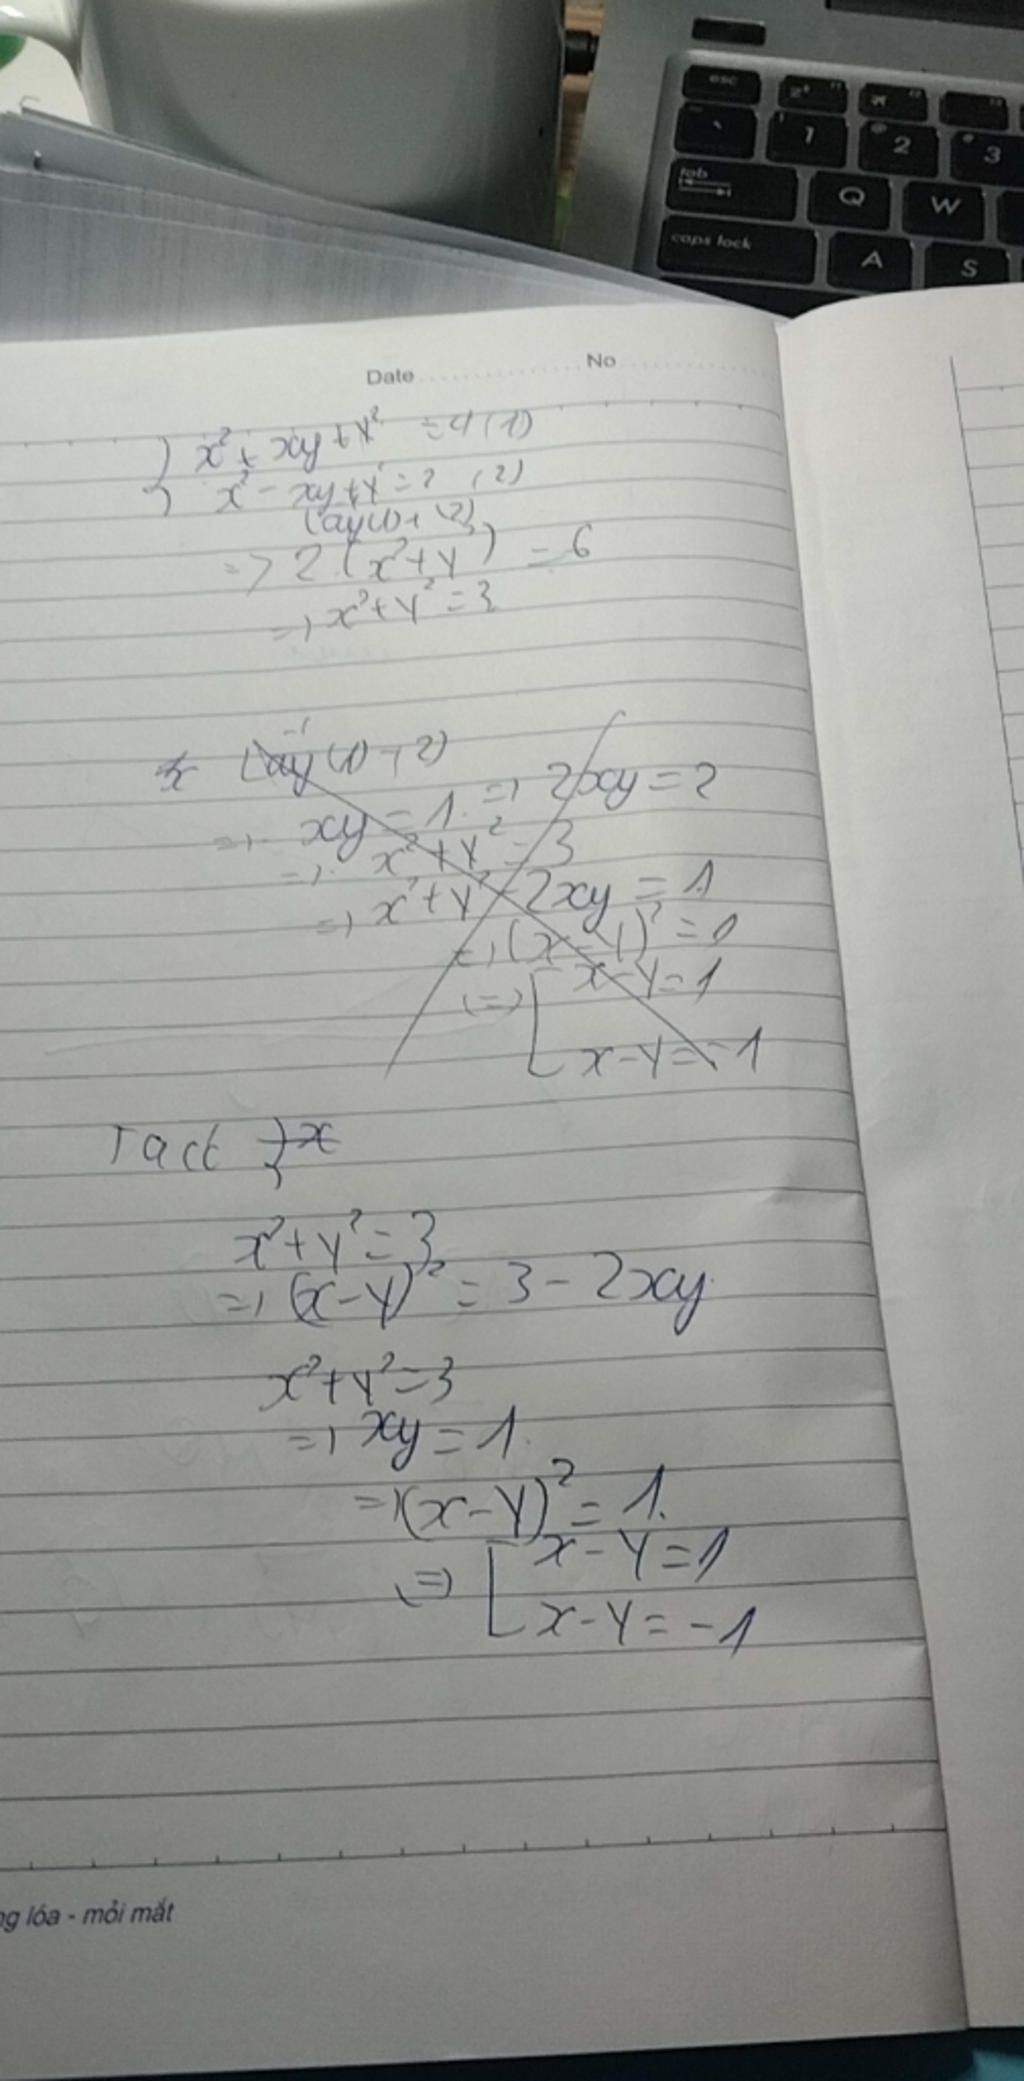 esc
1
2
3
tab
Q
W
caps lock
A
S
Date No
x² + xy + y² = 4 (1)
x² - xy + y² = 2 (2)
Lấy (1) + (2)
=> 2(x² + y²) = 6
=> x² + y² = 3
Lấy (1) - (2)
=> xy = 1 => 2xy = 2
=> x² + y² = 3
=> x² + y² - 2xy = 1
=> (x - y)² = 1
<=> [ x - y = 1
x - y = -1
Ta có x
x² + y² = 3
=> (x - y)² = 3 - 2xy
x² + y² = 3
=> xy = 1
=> (x - y)² = 1
<=> [ x - y = 1
x - y = -1
lóa - mỏi mắt